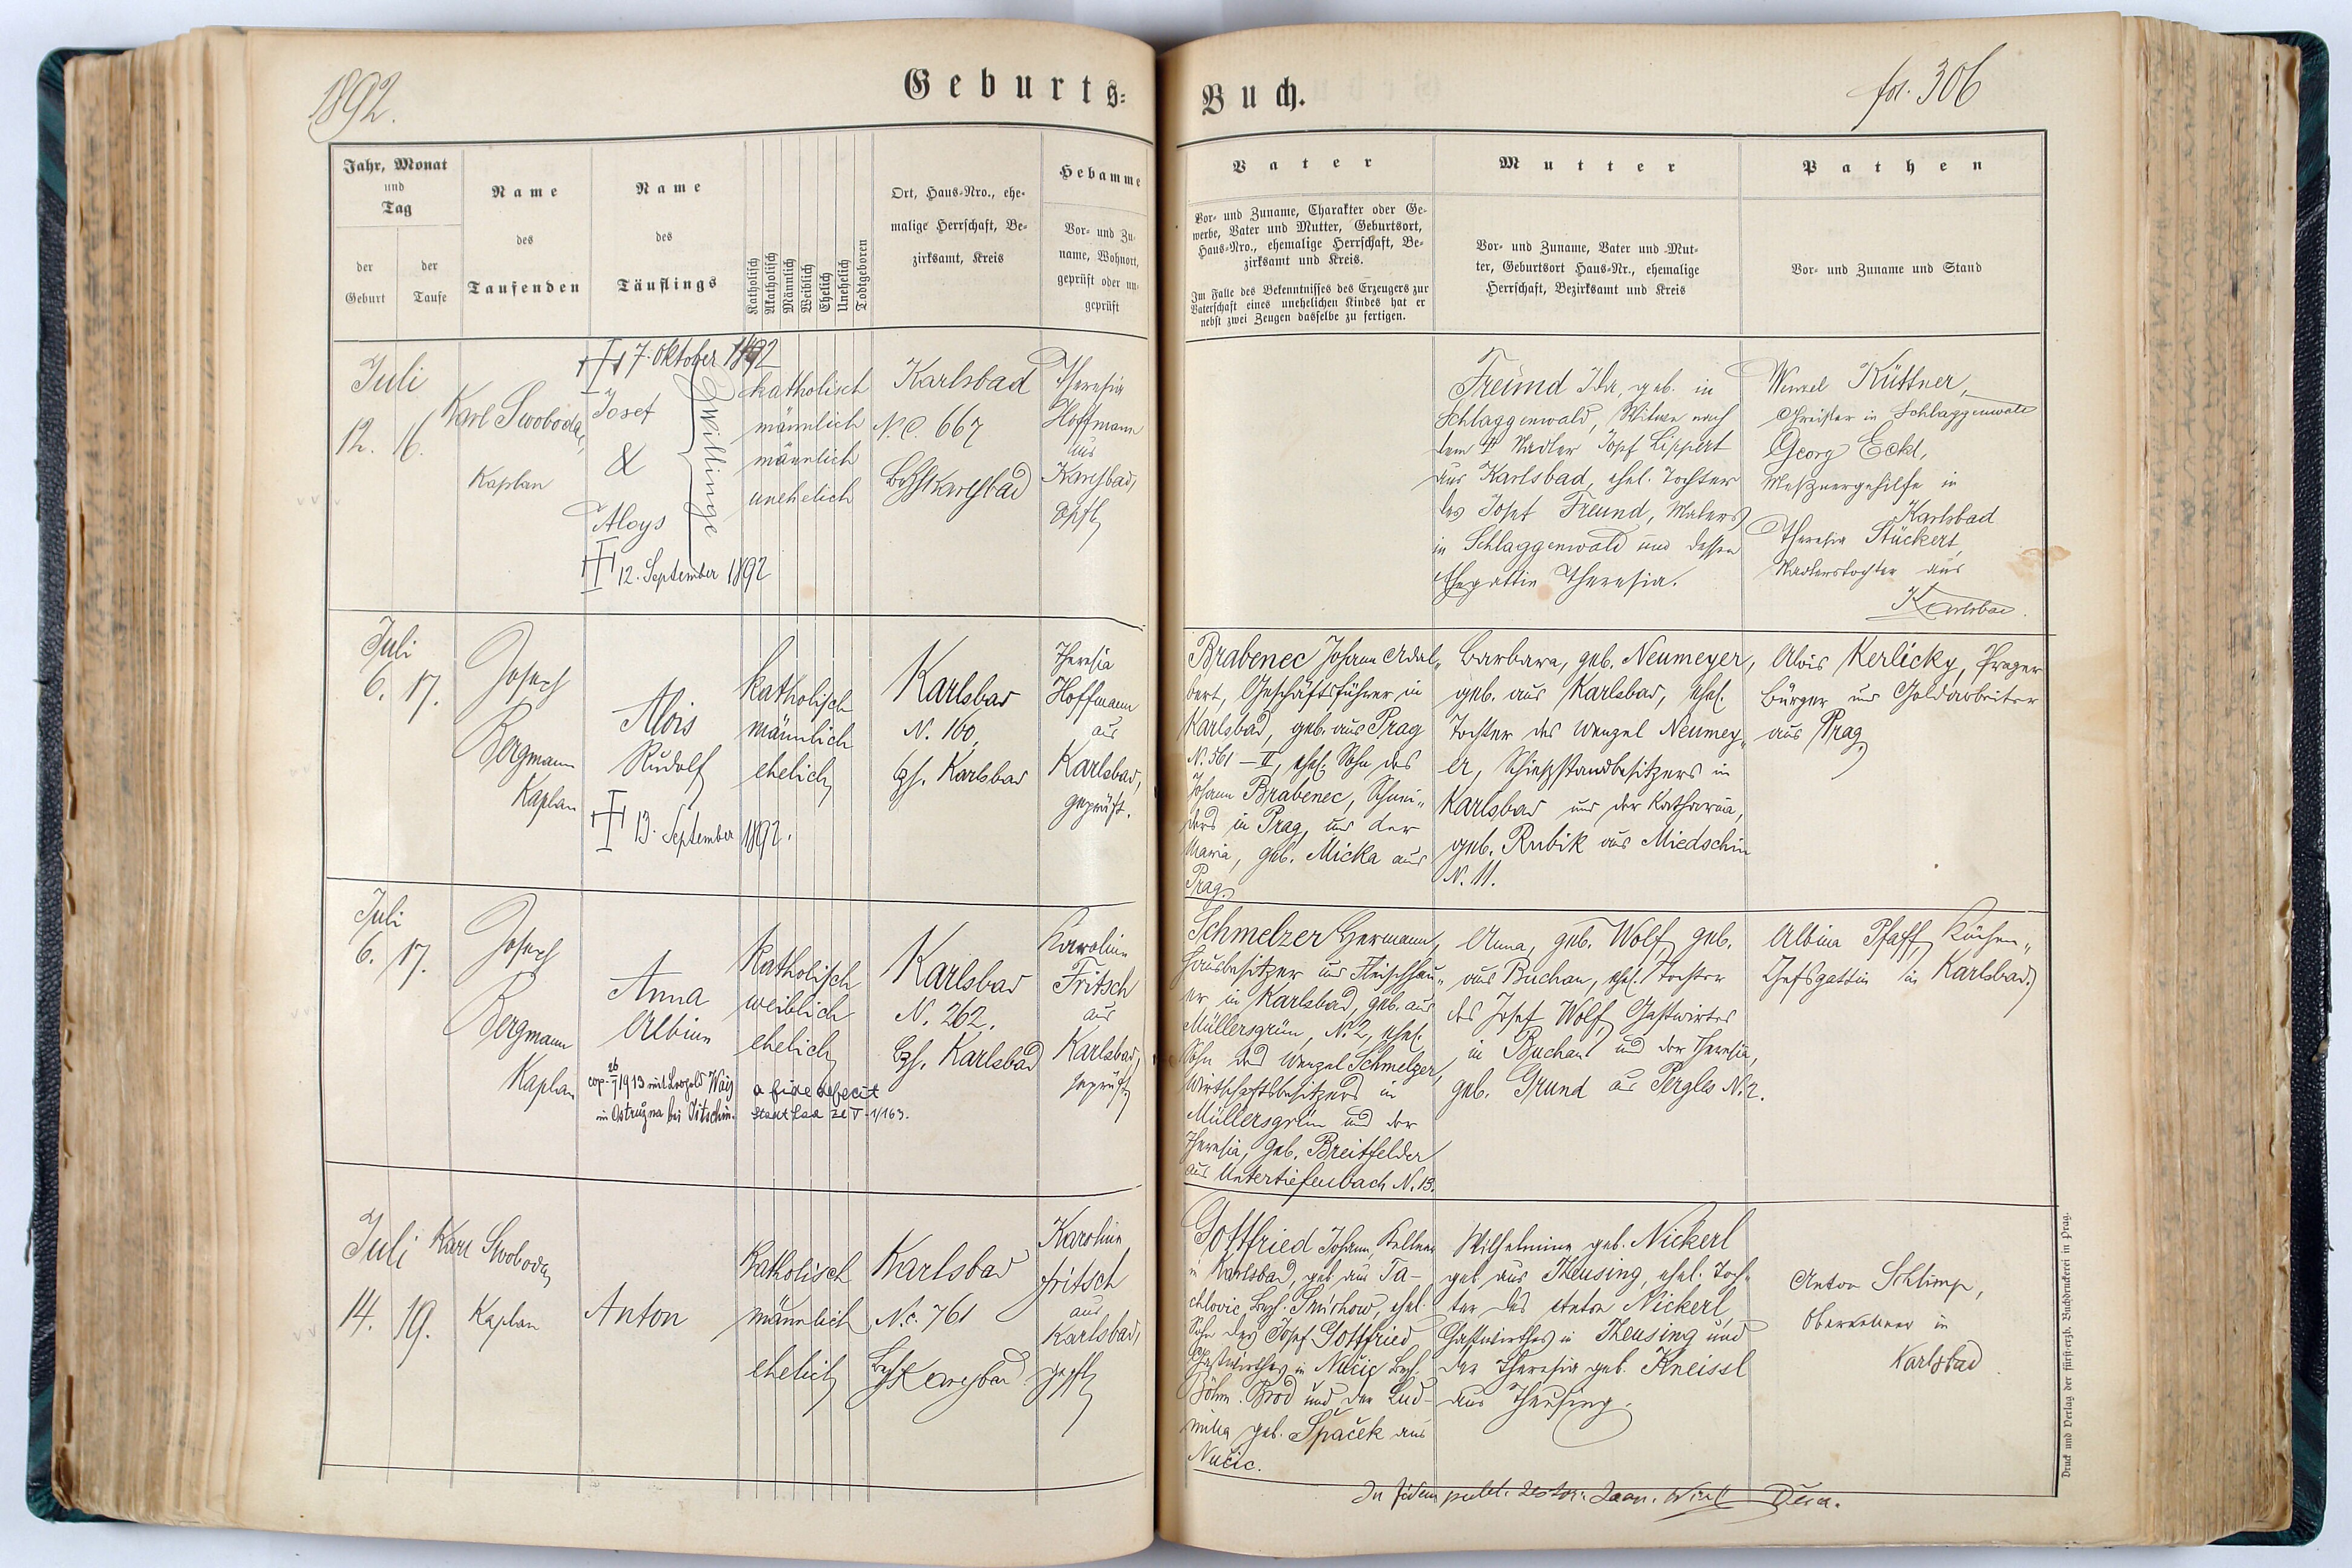 1892.
Geburts-
Jahr, Monat
und
Tag
der
Geburt
der
Taufe
Name
des
Taufenden
Name
des
Täuflings
Katholisch
Akatholisch
Männlich
Weiblich
Ehelich
Unehelich
Todtgeboren
Ort, Haus-Nro., ehe-
malige Herrschaft, Be-
zirksamt, Kreis
Hebamme
Vor- und Zu-
name, Wohnort,
geprüft oder un-
geprüft
Juli
12. 16.
Karl Swoboda,
Kaplan
7. Oktober 1892
Josef
&
Aloys
Zwillinge
12. September 1892
katholisch
männlich
männlich
unehelich
Karlsbad
N.C. 667
Bzh Karlsbad
Theresia
Hoffmann
aus
Karlsbad,
gepft
Juli
6. 17.
Josef
Bergmann
Kaplan
Alois
Rudolf
13. September 1892.
katholisch
männlich
ehelich
Karlsbad
N. 160,
Bzh. Karlsbad
Theresia
Hoffmann
aus
Karlsbad,
geprüft.
Juli
6. 17.
Josef
Bergmann
Kaplan
Anna
Albine
cop. 26/7 1913 mit Leopold
in Ostružna bei Jitschin.
katholisch
weiblich
ehelich
a fide defecit
Karlsbad
N. 262.
Bzh. Karlsbad
Karoline
Fritsch
aus
Karlsbad,
geprüft
Juli
14. 19.
Karl Swoboda,
Kaplan
Anton
Katholisch
männlich
ehelich
Karlsbad
N.c. 761
Bzh Karlsbad
Karoline
Fritsch
aus
Karlsbad,
gepft
Buch.
fol. 306
Vater
Vor- und Zuname, Charakter oder Ge-
werbe, Vater und Mutter, Geburtsort,
Haus-Nro., ehemalige Herrschaft, Be-
zirksamt und Kreis.
Im Falle des Bekenntnisses des Erzeugers zur
Vaterschaft eines unehelichen Kindes hat er
nebst zwei Zeugen dasselbe zu fertigen.
Mutter
Vor- und Zuname, Vater und Mut-
ter, Geburtsort Haus-Nr., ehemalige
Herrschaft, Bezirksamt und Kreis
Pathen
Vor- und Zuname und Stand
Freund Ida, geb. in
Schlaggenwald, Witwe nach
dem † Nadler Josef Lippert
aus Karlsbad, ehel. Tochter
des Josef Freund, Malers
in Schlaggenwald und dessen
Ehegattin Theresia.
Wenzel Küttner,
in Schlaggenwald
Georg Eckl,
Meßnergehilfe in
Karlsbad
Theresia Stückert,
Nadlerstochter aus
Karlsbad.
Brabenec Johann Adal-
bert, Geschäftsführer in
Karlsbad, geb. aus Prag
N. 561 – II, ehel. Sohn des
Johann Brabenec, Schnei-
ders in Prag, und der
Maria, geb. Micka aus
Prag.
Barbara, geb. Neumeyer,
geb. aus Karlsbad, ehel.
Tochter des Wenzel Neumey-
er, Schießstandbesitzers in
Karlsbad und der Katharina,
geb. Rubik aus Miedschin
N. 11.
Alois Kerlicky, Prager
Bürger und Goldarbeiter
aus Prag
Schmelzer Hermann,
Hausbesitzer und Fleischhau-
er in Karlsbad, geb. aus
Müllersgrün, N. 2, ehel.
Sohn des Wenzel Schmelzer,
Wirtschaftsbesitzers in
Müllersgrün und der
Theresia, geb. Breitfelder
aus Untertiefenbach N. 13.
Anna, geb. Wolf, geb.
aus Buchau, ehel. Tochter
des Josef Wolf, Gastwirtes
in Buchau und der Theresia,
geb. Grund aus Pergles N. 2.
Albina Pfaff, Küchen-
chefsgattin in Karlsbad.
Gottfried Johann, Kellner
in Karlsbad, geb. aus Ta-
chlovic, Bzh. Smichow, ehel.
Sohn des Josef Gottfried
Gastwirthes in Nučic Bzh.
Böhm. Brod und der Lud-
milla geb. Špaček aus
Nučic.
Wilhelmine geb. Nickerl
geb. aus Theusing, ehel. Toch-
ter des Anton Nickerl,
Gastwirthes in Theusing und
der Theresia geb. Kneissl
aus Theusing.
Anton Schlimp,
Oberkellner in
Karlsbad
In fidem
Druck und Verlag der fürsterzb. Buchdruckerei in Prag.